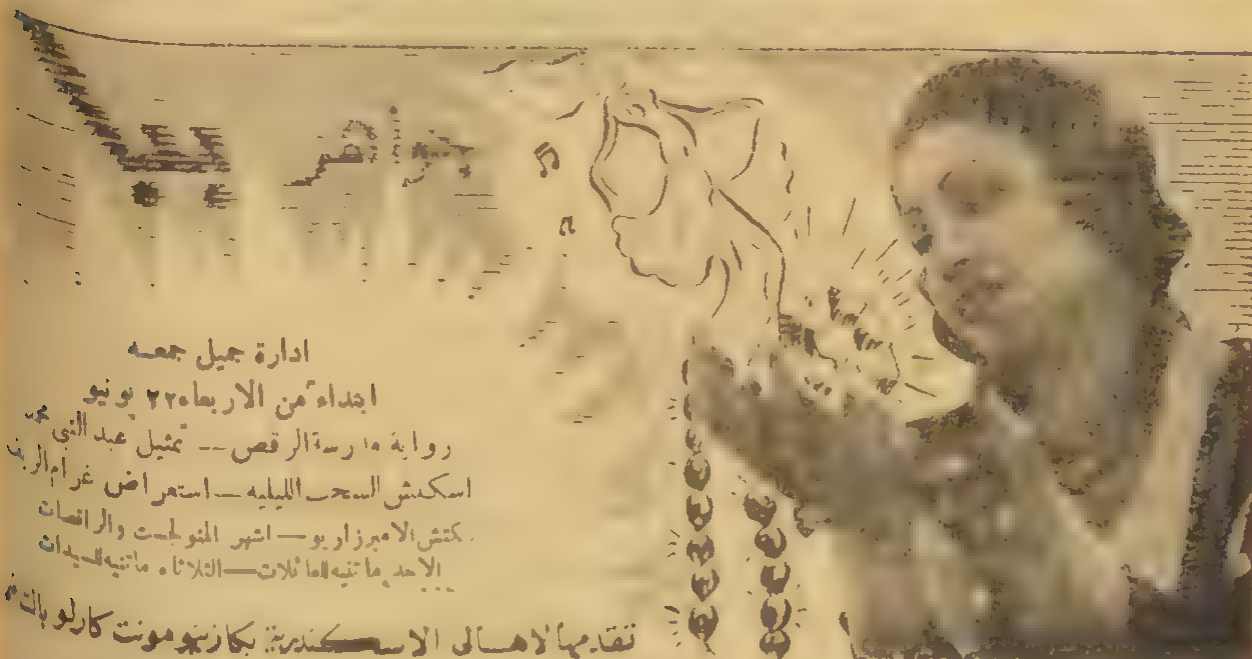 جواهر ببا
ادارة جميل جمعه
ابتداء من الاربعاء ٢٢ يونيو
رواية مدرسة الرقص -- تمثيل عبد النبي محمد
اسكتش السحب الليليه — استعراض غرام الريف
الامبرزاريو — اشهر المنولجست والراقصات
الاحد ماتنيه للعائلات — الثلاثاء ماتنيه للسيدات
تقدمها لاهالى الاسكندرية بكازينو مونت كارلو